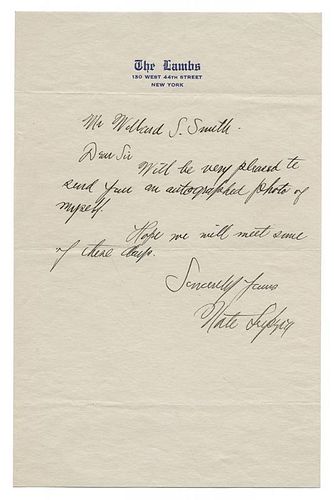 The Lambs
130 WEST 44TH STREET
NEW YORK
Mr Willard S. Smith.
Dear Sir
Will be very pleased to
send you an autographed photo of
myself.
Hope we will meet some
of these days.
Sincerely Yours
Nate Leipzig